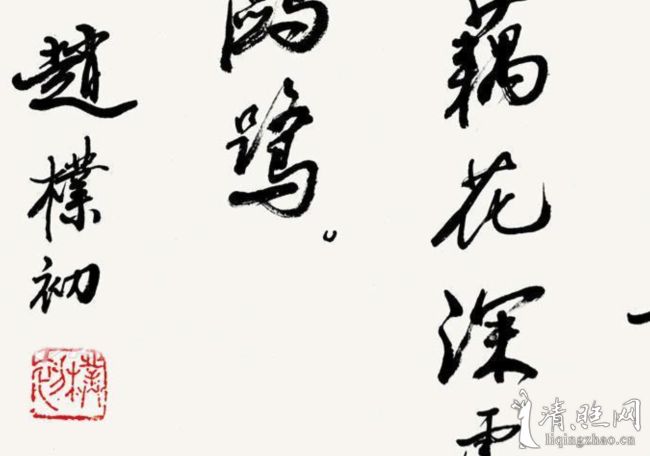 藕花深
鷗鷺。
趙樸初
清照网
liqingzhao.cn